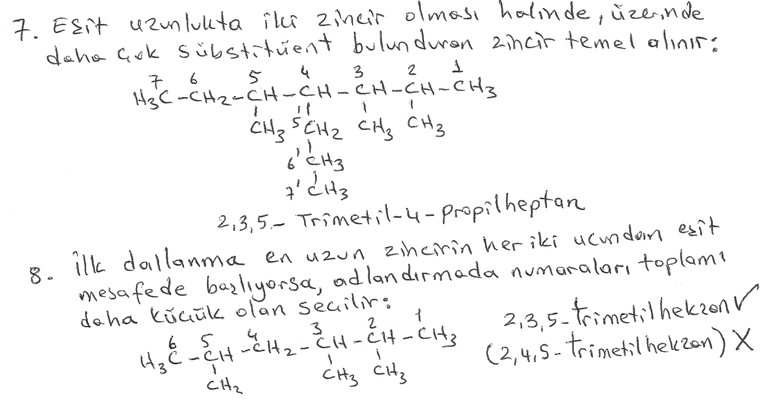 7. Eşit uzunlukta iki zincir olması halinde, üzerinde
daha çok sübstitüent bulunduran zincir temel alınır:
7 6 5 4 3 2 1
H3C-CH2-CH-CH-CH-CH-CH3
CH3 5'CH2 CH3 CH3
6' CH3
7' CH3
2,3,5.- Trimetil-4-propilheptan
8. İlk dallanma en uzun zincirin her iki ucundan eşit
mesafede başlıyorsa, adlandırmada numaraları toplamı
daha küçük olan seçilir:
6 5 4 3 2 1
H3C-CH-CH2-CH-CH-CH3
CH3 CH3 CH3
2,3,5-trimetilhekzan ✓
(2,4,5-trimetilhekzan) X